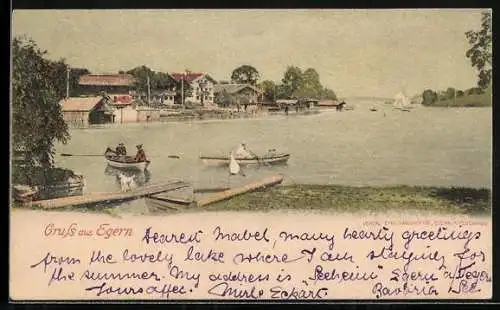 Gruß aus Egern.
Dearest Mabel, many hearty greetings
from the lovely lake where I am staying for
the summer. My address is "Seeheim" Egern a/Tegern
Yours affec. Merle Eckart Bavaria See